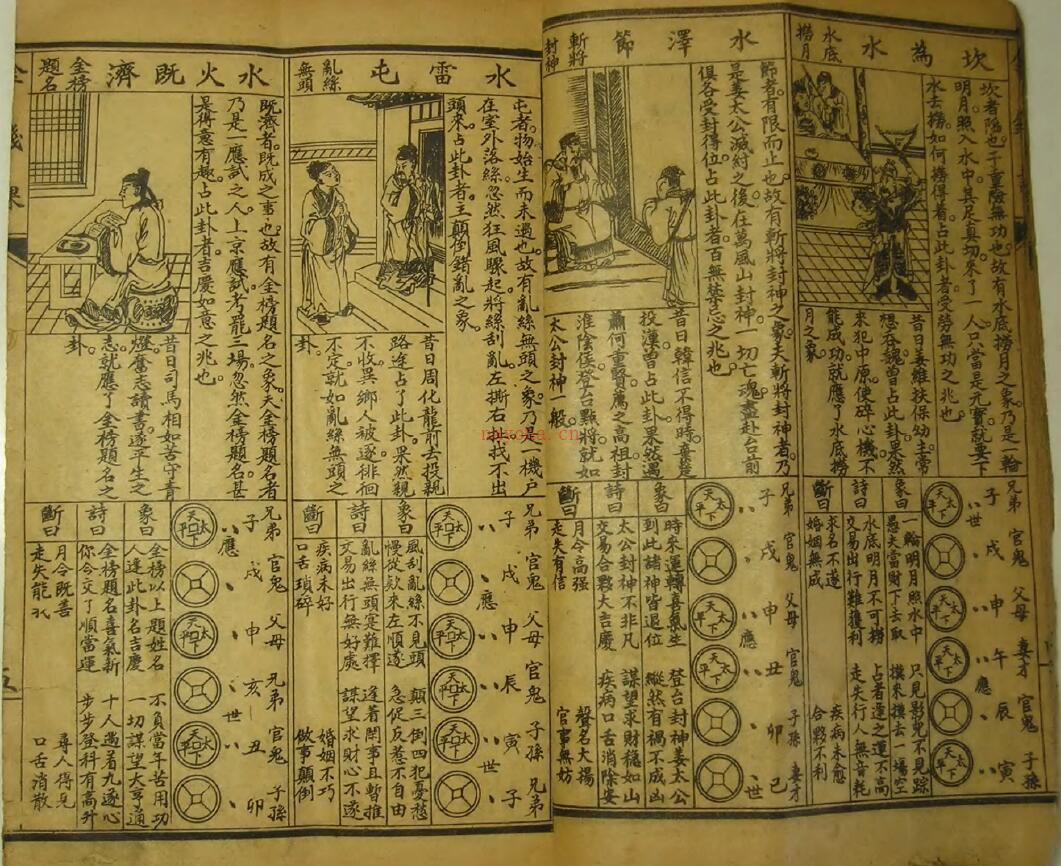 坎為水
水底
撈月
坎者陷也千重險無功也故有水底撈月之象乃是一輪
明月照入水中其是真切來了一人只當是元寶就要下
水去撈如何撈得着占此卦者受勞無功之兆也
昔日姜維扶保幼主常
想吞魏曾占此卦果然
來犯中原使碎心機不
能成功就應了水底撈
月之象
兄弟 官鬼 父母 妻才 官鬼 子孫
子 戌 申 午 辰 寅
世 應
天下太平
象曰
一輪明月照水中 只見影兒不見踪
愚夫當財下去取 摸來摸去一場空
詩曰
水底明月不可撈 占者逢之運不高
交易出行難獲利 走失行人無音耗
斷曰
求名不遂 疾病未愈
婚姻無成 合夥不利
水澤節
斬將
封神
節者有限而止也故有斬將封神之象夫斬將封神者乃
是姜太公滅紂之後在萬風山封神一切亡魂盡赴台前
俱各受封得位占此卦者百無禁忌之兆也
昔日韓信不得時棄楚
投漢曽占此卦果然遇
蕭何重賢薦之高祖封
淮陰侯登台點將就如
太公封神一般
兄弟 官鬼 父母 官鬼 子孫 妻才
子 戌 申 丑 卯 巳
應 世
天下太平
象曰
時來運轉喜氣生 登台封神姜太公
到此諸神皆退位 縱然有禍不成凶
詩曰
太公封神不非凡 謀望求財穩如山
交易合夥大吉慶 疾病口舌消除安
斷曰
月令高强 聲名大揚
走失有信 官事無妨
水雷屯
亂絲
無頭
屯者物始生而未通也故有亂絲無頭之象乃是一機户
在室外落絲忽然狂風驟起將絲刮亂左撕右扯找不出
頭來占此卦者主顛倒錯亂之象
昔日周化龍前去投親
路途占了此卦果然親
不收異鄉人被逐徘徊
不定就如亂絲無頭之
卦
兄弟 官鬼 父母 官鬼 子孫 兄弟
子 戌 申 辰 寅 子
應 世
天下太平
象曰
風刮亂絲不見頭 顛三倒四犯憂愁
慢從款來左順遂 急促反惹不自由
詩曰
亂絲無頭寔難擇 逢着閑事且暫推
交易出行無好處 謀望求財心不遂
斷曰
疾病未好 婚姻不巧
口舌瑣碎 做事顛倒
水火既濟
金榜
題名
既濟者既成之事也故有金榜題名之象夫金榜題名者
乃是一應試之人上京應試考罷三場忽然金榜題名甚
是得意有趣占此卦者吉慶如意之兆也
昔日司馬相如苦守青
燈奮志讀書遂平生之
志就應了金榜題名之
卦
兄弟 官鬼 父母 兄弟 官鬼 子孫
子 戌 申 亥 丑 卯
應 世
天下太平
象曰
金榜以上題姓名 不負當年苦用功
人逢此卦名吉慶 一切謀望大亨通
詩曰
金榜題名喜氣新 十人遇着九遂心
你今交了順當運 步步登科有高升
斷曰
月令既善 尋人得見
走失能找 口舌消散
五